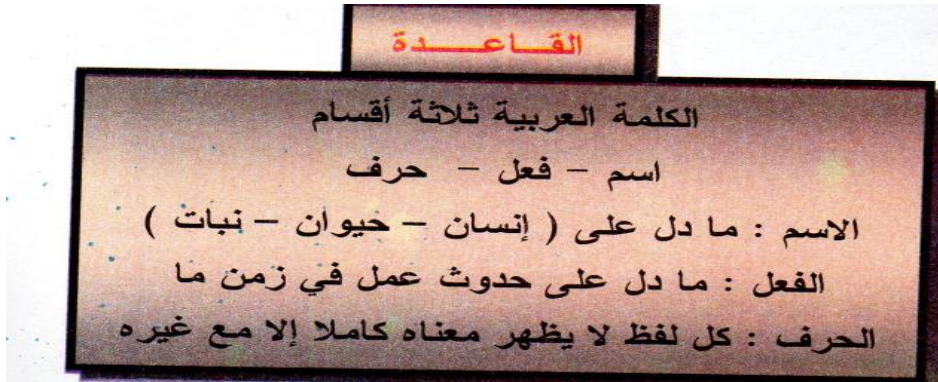 القـــاعـــــدة
الكلمة العربية ثلاثة أقسام
اسم – فعل – حرف
الاسم : ما دل على ( إنسان – حيوان – نبات )
الفعل : ما دل على حدوث عمل في زمن ما
الحرف : كل لفظ لا يظهر معناه كاملا إلا مع غيره